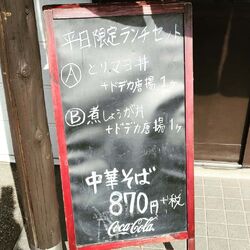 平日限定ランチセット
Ⓐとりマヨ丼
+ドデカ唐揚1ヶ
Ⓑ煮しょうが丼
+ドデカ唐揚1ヶ
中華そば
870円+税
Coca-Cola